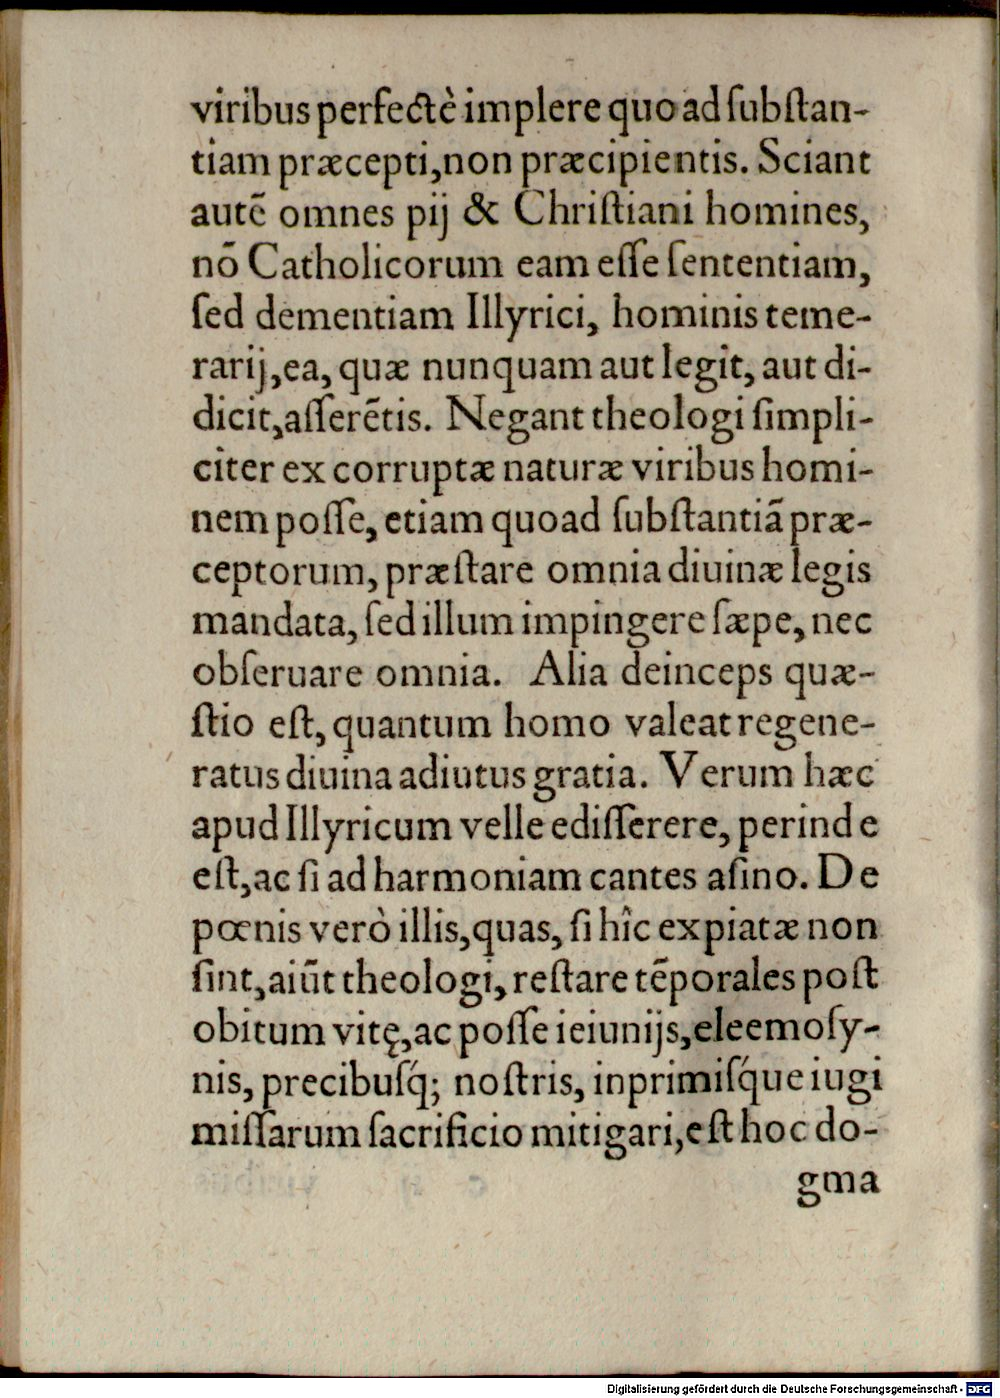 viribus perfectè implere quo ad ſubſtan-
tiam præcepti, non præcipientis. Sciant
autē omnes pij & Chriſtiani homines,
nō Catholicorum eam eſſe ſententiam,
ſed dementiam Illyrici, hominis teme-
rarij, ea, quæ nunquam aut legit, aut di-
dicit, aſſerētis. Negant theologi ſimpli-
citer ex corruptæ naturæ viribus homi-
nem poſſe, etiam quoad ſubſtantiā præ-
ceptorum, præſtare omnia diuinæ legis
mandata, ſed illum impingere ſæpe, nec
obſeruare omnia. Alia deinceps quæ-
ſtio eſt, quantum homo valeat regene-
ratus diuina adiutus gratia. Verum hæc
apud Illyricum velle ediſſerere, perinde
eſt, ac ſi ad harmoniam cantes aſino. De
pœnis verò illis, quas, ſi hîc expiatæ non
ſint, aiūt theologi, reſtare tēporales poſt
obitum vitę, ac poſſe ieiunijs, eleemoſy-
nis, precibuſq́; noſtris, inprimiſq́ue iugi
miſſarum ſacrificio mitigari, eſt hoc do-
gma
Digitalisierung gefördert durch die Deutsche Forschungsgemeinschaft - DFG